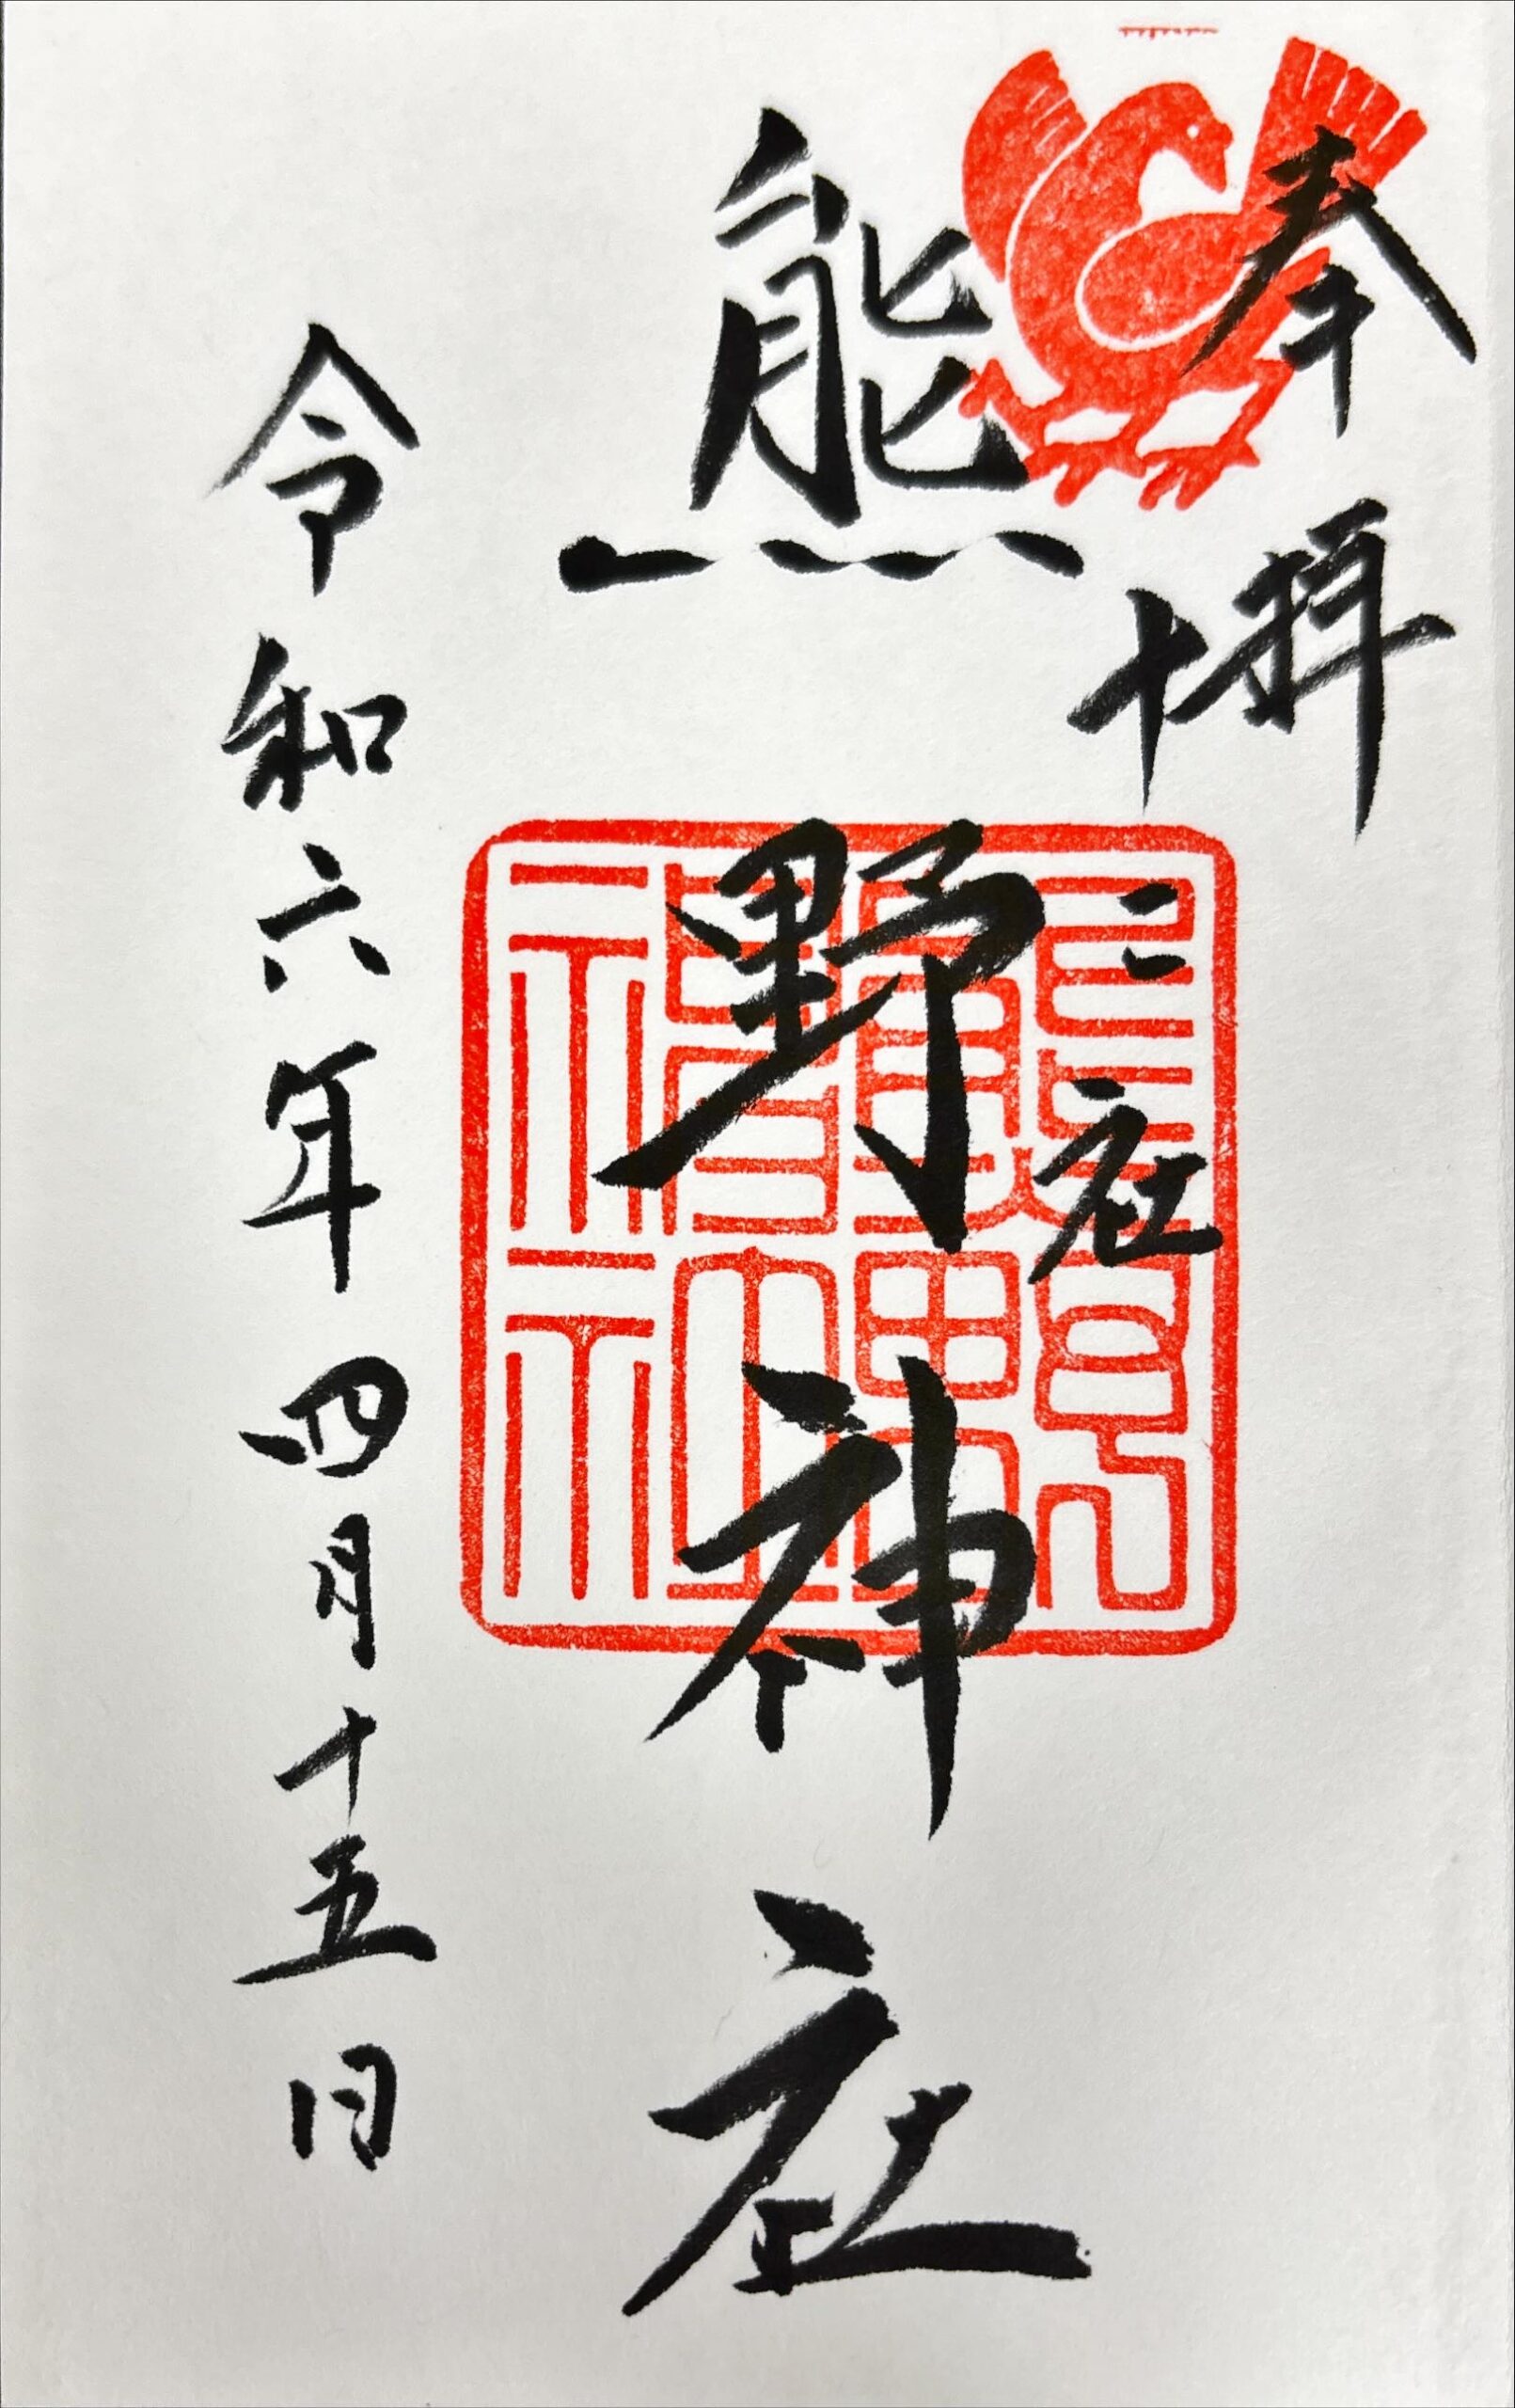 奉拝
十二社
熊野神社
令和六年四月十五日